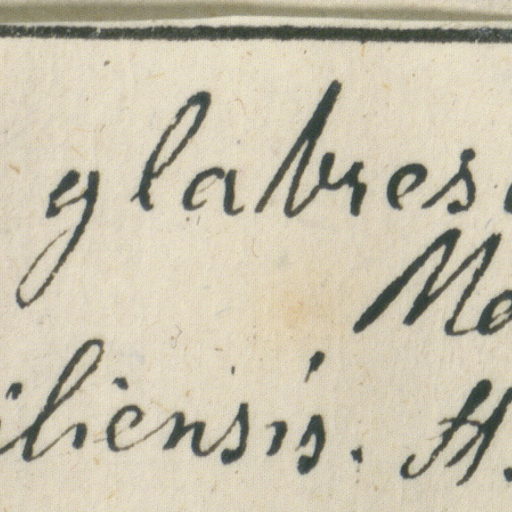 glabresc
Ma
iliensis. H.